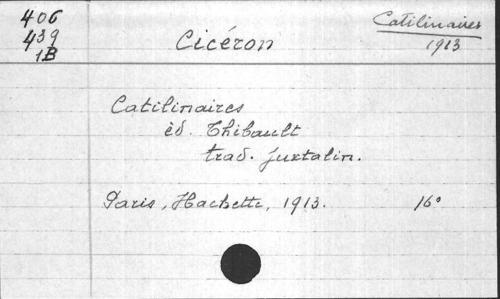 406
439
1B
Cicéron
Catilinaires
1913
Catilinaires
éd. Thibault
trad. juxtalin.
Paris, Hachette, 1913. 16°